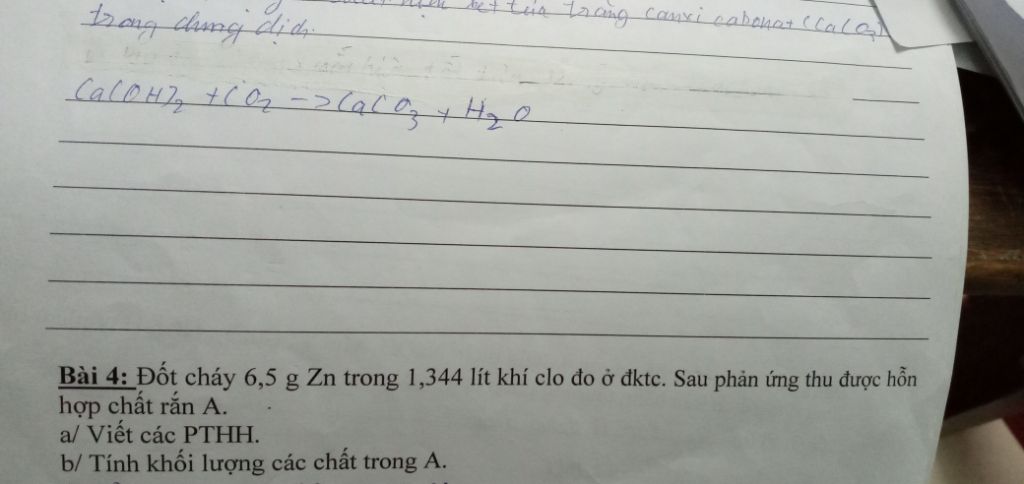 kết tủa trắng canxi cabonat (CaCO3)
trong dung dịch.
Ca(OH)2 + CO2 -> CaCO3 + H2O
Bài 4: Đốt cháy 6,5 g Zn trong 1,344 lít khí clo đo ở đktc. Sau phản ứng thu được hỗn
hợp chất rắn A.
a/ Viết các PTHH.
b/ Tính khối lượng các chất trong A.